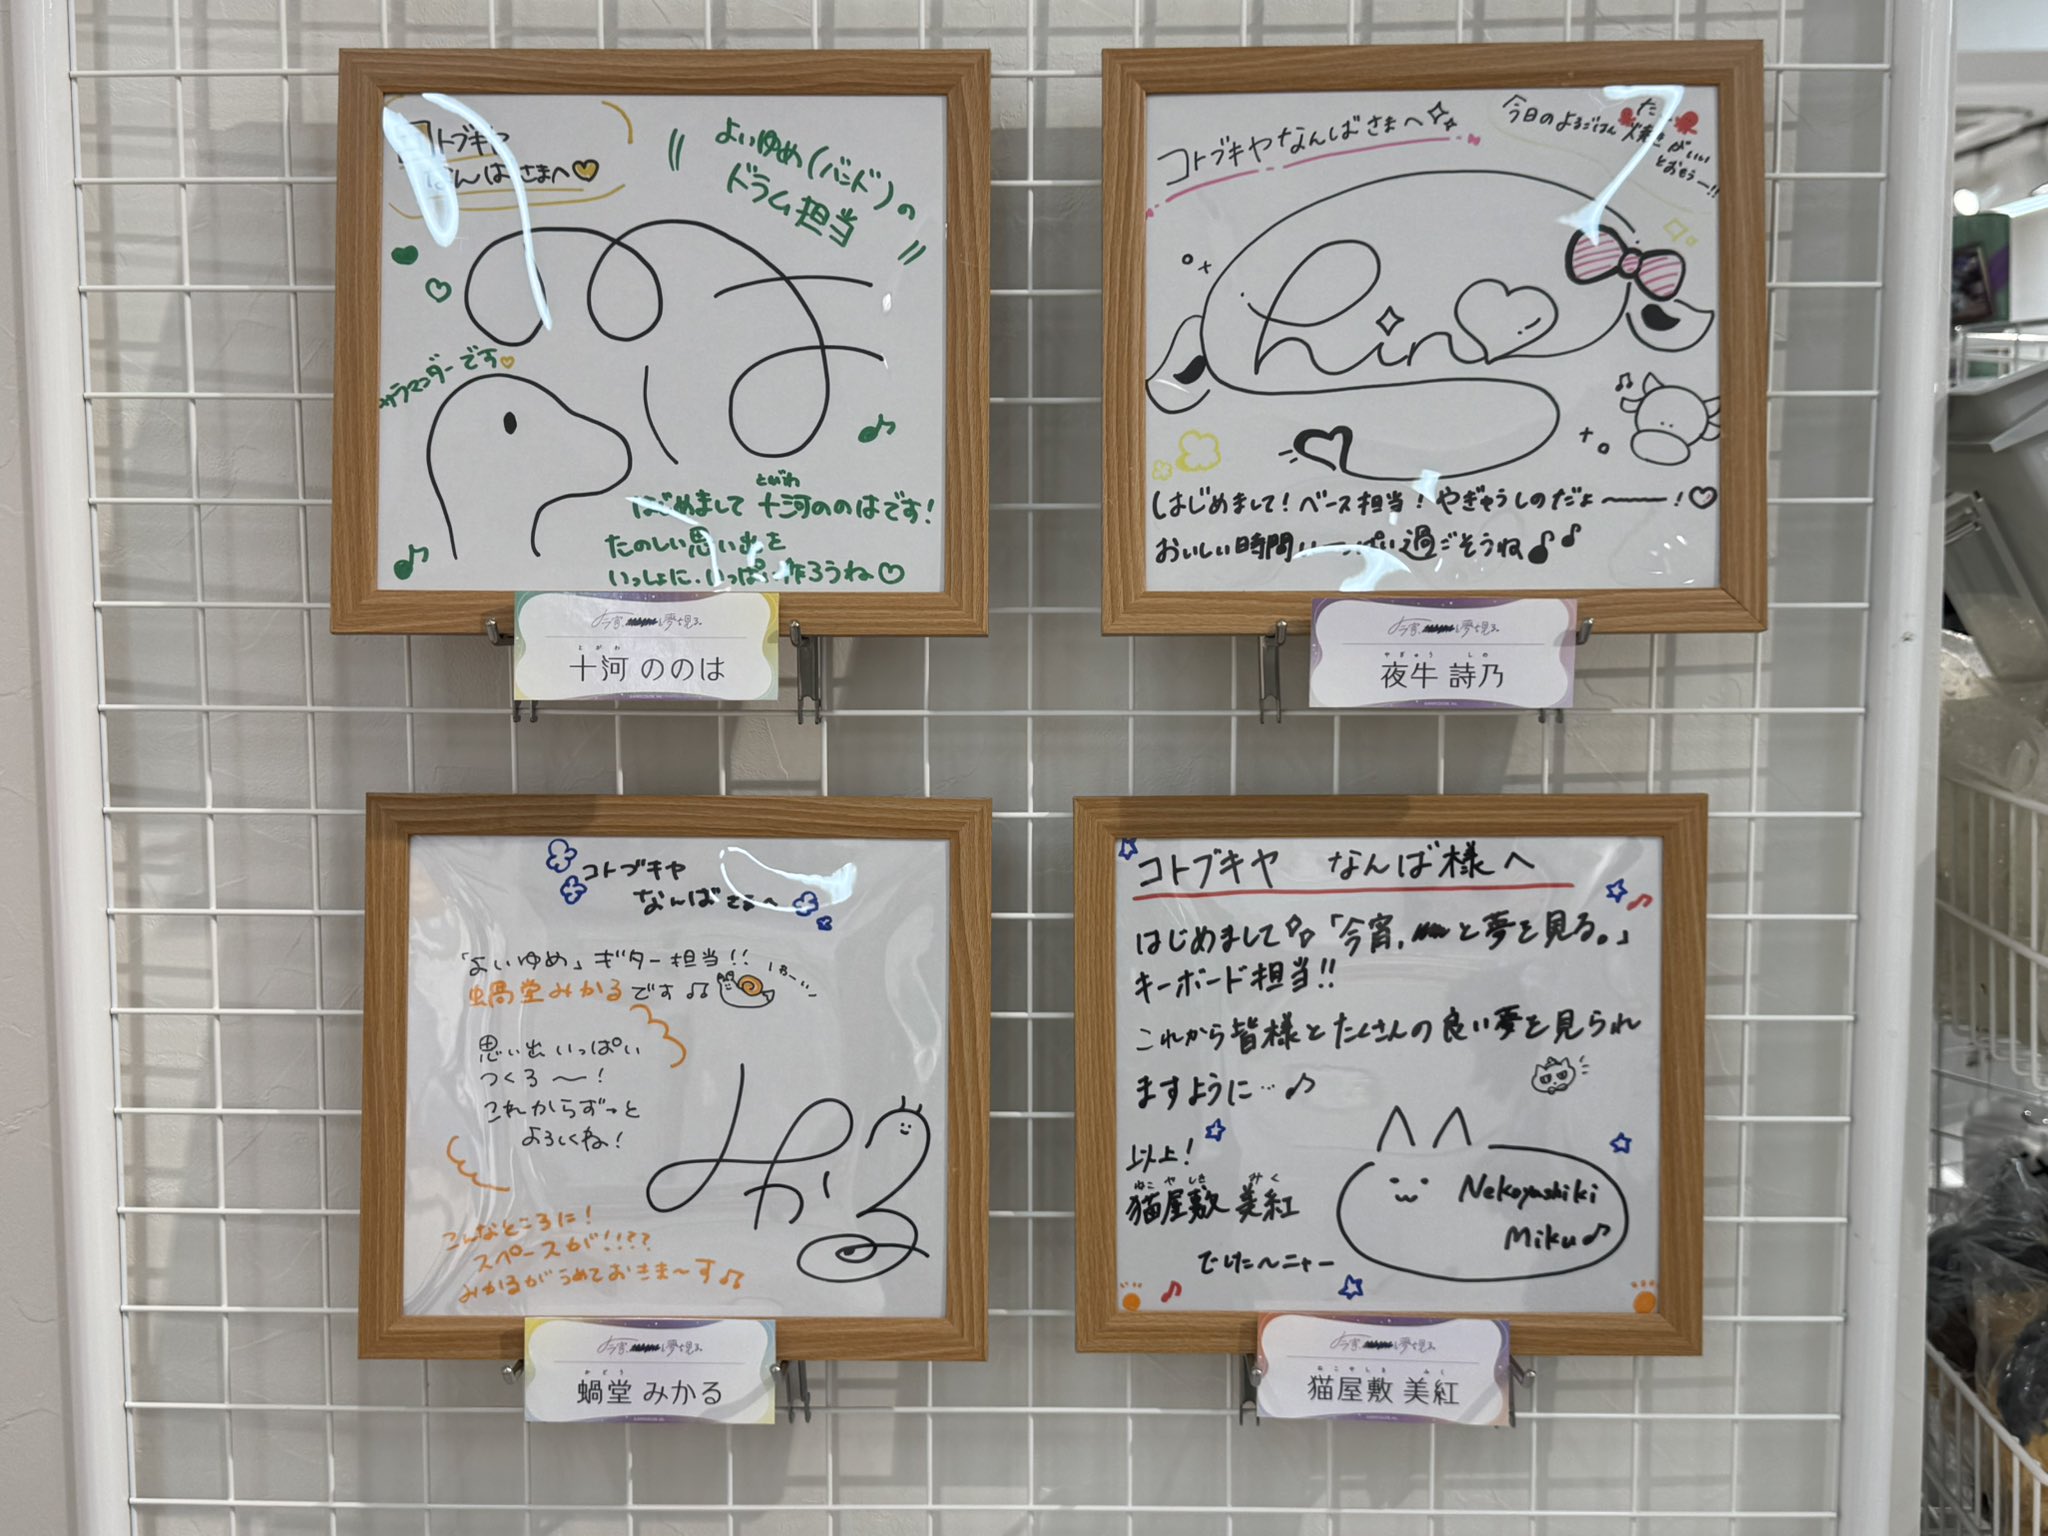 コトブキヤ
なんばさまへ
よいゆめ(バンド)の
ドラム担当
サラマンダーです
ののは
とがわ
はじめまして 十河ののはです!
たのしい思い出を
いっしょに、いっぱい作ろうね
今宵 と夢を見る。
とがわ
十河 ののは
コトブキヤなんばさまへ
今日のよるごはん たこ
焼きがいい
とおもうー!!
Shino
はじめまして!ベース担当!やぎゅうしのだよ〜!
おいしい時間いっぱい過ごそうね♪♪
今宵 と夢を見る。
やぎゅう しの
夜牛 詩乃
コトブキヤ
なんばさまへ
「よいゆめ」ギター担当!!
蝸堂みかるです♫
思い出いっぱい
つくろ〜!
これからずっと
よろしくね!
みかる
こんなところに!
スペースが!!??
みかるがうめておきま〜す♫
今宵 と夢を見る。
かどう
蝸堂 みかる
コトブキヤ なんば様へ
はじめまして 「今宵、 と夢を見る。」
キーボード担当!!
これから皆様とたくさんの良い夢を見られ
ますように…♪
以上!
ねこやしき みく
猫屋敷 美紅
でした〜ニャー
Nekoyashiki
Miku♪
今宵 と夢を見る。
ねこやしき みく
猫屋敷 美紅